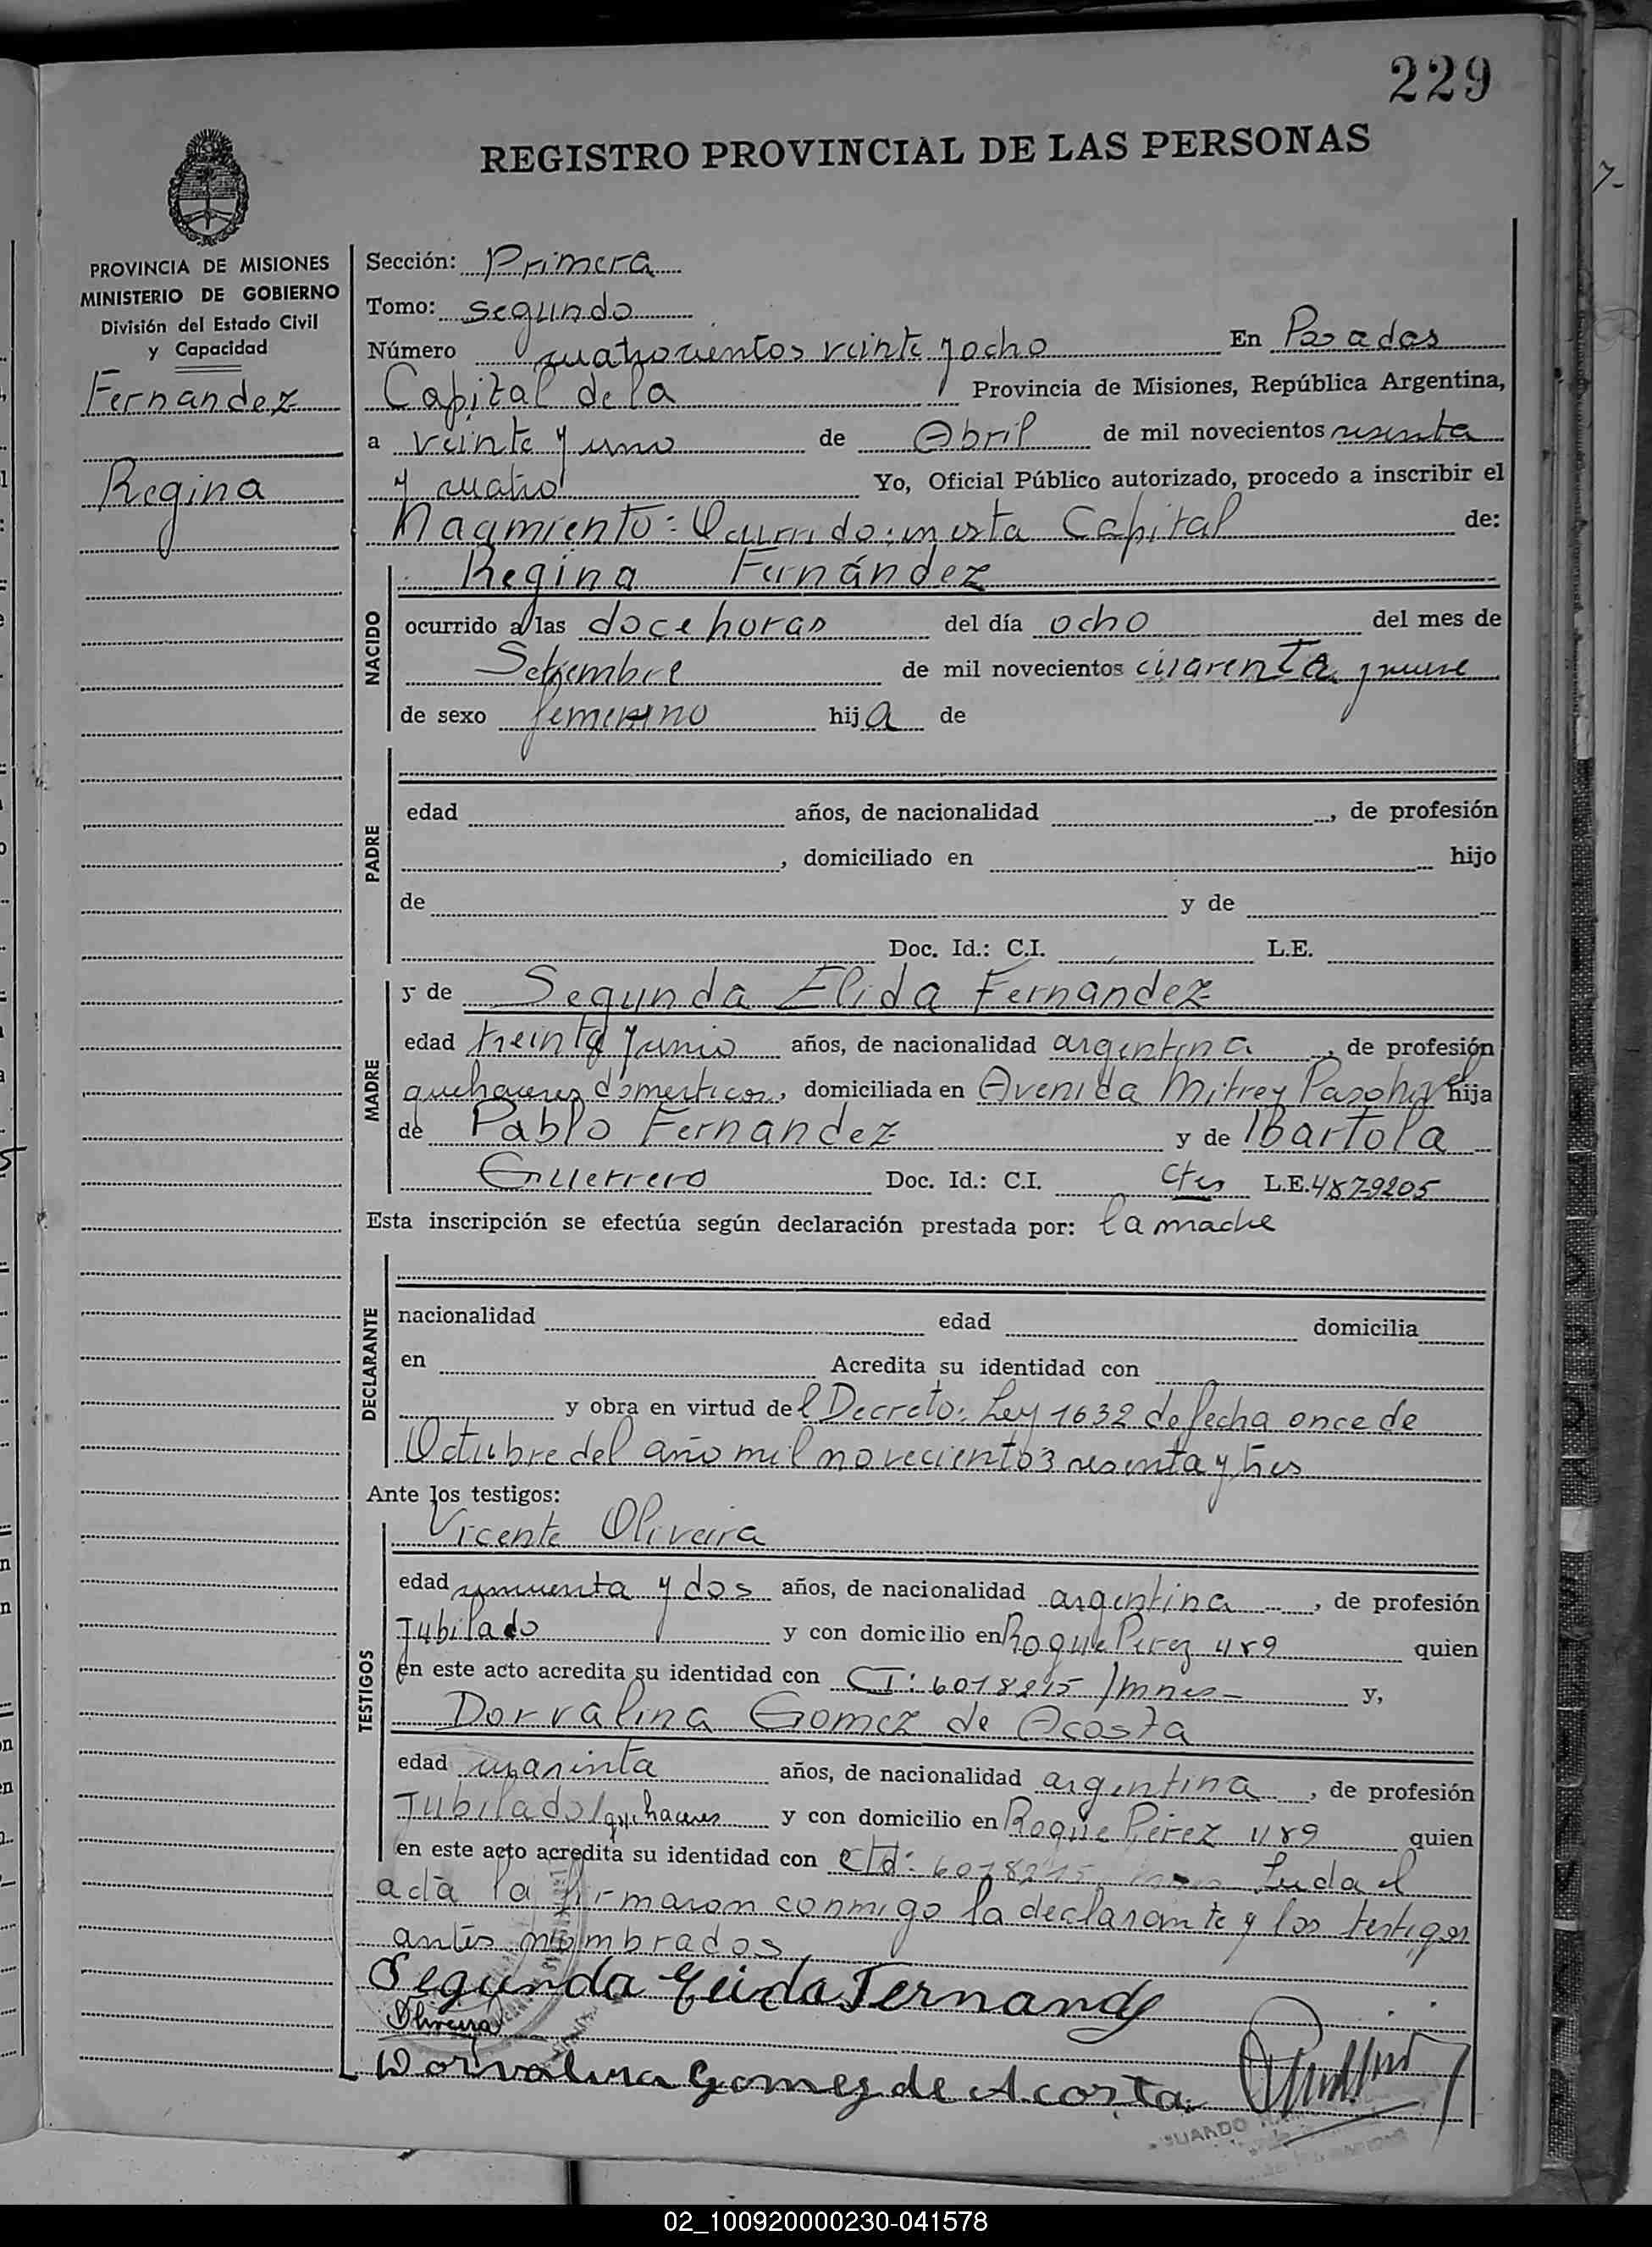 229
REGISTRO PROVINCIAL DE LAS PERSONAS
PROVINCIA DE MISIONES
MINISTERIO DE GOBIERNO
División del Estado Civil
y Capacidad
Fernandez
Regina
Sección: Primera
Tomo: segundo
Número cuatrocientos veinte y ocho En Posadas
Capital de la Provincia de Misiones, República Argentina,
a veinte y uno de Abril de mil novecientos sesenta
y cuatro Yo, Oficial Público autorizado, procedo a inscribir el
Nacimiento: Ocurrido: en esta Capital de:
NACIDO
Regina Fernández
ocurrido a las doce horas del día ocho del mes de
Setiembre de mil novecientos cuarenta y nueve
de sexo femenino hija de
PADRE
edad años, de nacionalidad , de profesión
, domiciliado en hijo
de y de
Doc. Id.: C.I. L.E.
MADRE
y de Segunda Elida Fernandez
edad treinta y años, de nacionalidad argentina , de profesión
quehaceres domesticos, domiciliada en Avenida Mitre y hija
de Pablo Fernandez y de Bartola
Guerrero Doc. Id.: C.I. Ctes L.E. 4879205
Esta inscripción se efectúa según declaración prestada por: la madre
DECLARANTE
nacionalidad edad domicilia
en Acredita su identidad con
y obra en virtud del Decreto: Ley 1632 de fecha once de
Octubre del año mil novecientos sesenta y tres
Ante los testigos:
TESTIGOS
Vicente Oliveira
edad y dos años, de nacionalidad argentina , de profesión
Jubilado y con domicilio en Roque Perez 489 quien
en este acto acredita su identidad con CI: 6018215 /mnes- y,
Dorvalina Gomez de Acosta
edad cuarenta años, de nacionalidad argentina , de profesión
Jubilado/quehaceres y con domicilio en Roque Pérez 489 quien
en este acto acredita su identidad con Leida el
acta la firmaron conmigo la declarante y los testigos
antes nombrados
Segunda Elida Fernandez
Oliveira
Dorvalina Gomez de Acosta
02_100920000230-041578